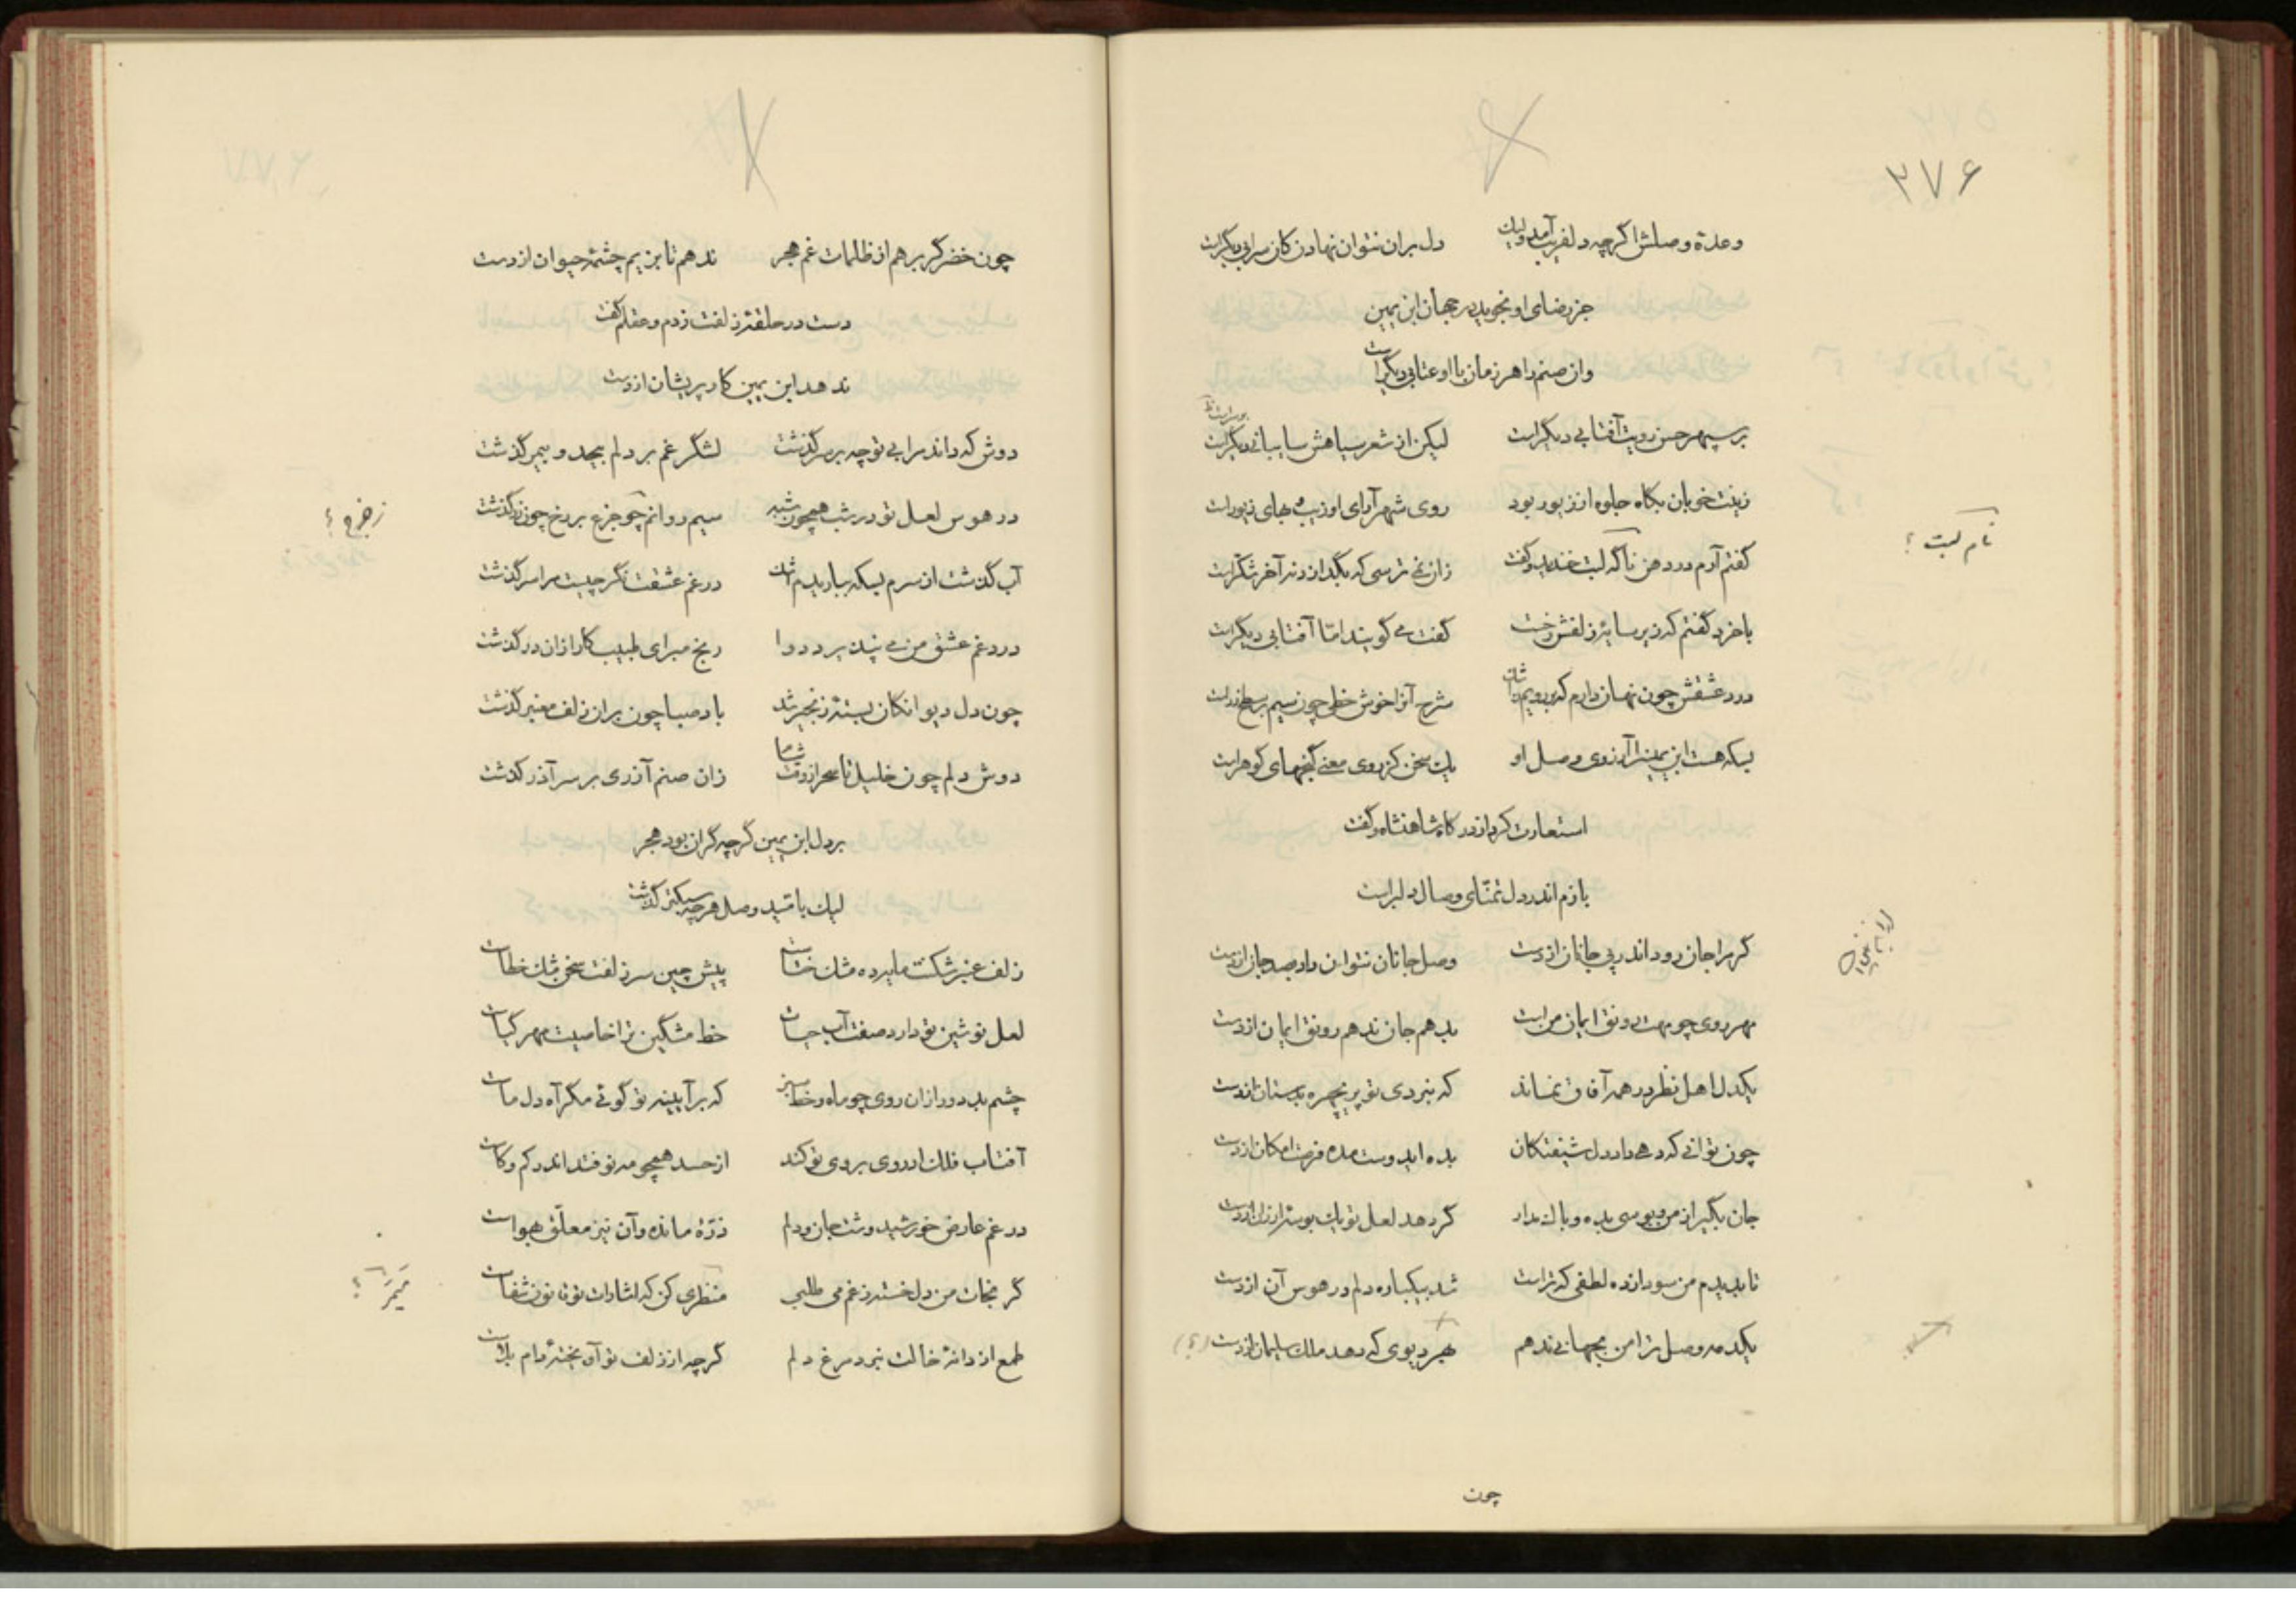 ۳۷۶
وعدهٔ وصلش اگرچه دلفریب آمد ولیک دل بران نتوان نهادن کان سرابی دیگراست
جز رضای او نجوید در جهان ابن یمین
وان صنم را هر زمان با او عتابی دیگراست
بر سپهر حسن رویت آفتابی دیگراست لیکن از شعر سیاهش سایبانی دیگراست
زینت خوبان بگاه جلوه از زیور بود روی شهرآرای او زیب بهای زیوراست
گفتم آرم در دهن ناگه لبت خندید و گفت زان نمی‌ترسی که بگدازد نه آخر شکراست
نام لبت ؟
با خرد گفتم که زیر سایهٔ زلفش رخت گفت می گویند امّا آفتابی دیگراست
درد عشقش چون نهان دارم که بر رویم سرشک شرح آنرا خوش خطی چون سیم بر سطح زراست
بسکه هست ابن یمین را آرزوی وصل او یک سخن کز روی معنی گنجهای گوهراست
استعارت کرد از درگاه شاهنشاه و گفت
بازم اندر دل تمنّای وصال دلبراست
گر مرا جان رود اندر پی جانان از دست وصل جانان نتوان داد بصد جان از دست
مهر روی چو مهت رونق ایمان من است بدهم جان ندهم رونق ایمان از دست
یکدل اهل نظر در همه آفاق نماند که نبردی تو پریچهره بدستان از دست
چون توانی که دهی داد دل شیفتگان بده ایدوست مده فرصت امکان از دست
جان بگیر از من و بوسی بده و باک مدار گر دهد لعل تو یک بوسه ارزان از دست
تا بدیدم من سودازده لطفی که تراست شد بیکباره دلم در هوس آن از دست
یکدمه وصل ترا من بجهانی ندهم بهر دیوی که دهد ملک سلیمان از دست (؟)
چون
چون خضر گر برهم از ظلمات غم هجر ندهم تا بزیم چشمهٔ حیوان از دست
دست در حلقهٔ زلفت زدم و عقلم گفت
ندهد ابن یمین کار پریشان از دست
دوش که داند مرا بی تو چه بر سر گذشت لشگر غم بر دلم بیحد و بیمر گذشت
در هوس لعل تو در شب همچون شبه سیم روانم چو جزع بر رخ چون زر گذشت
ز جزع ؟
آب گذشت از سرم بسکه بباریدم اشک در غم عشقت نگر چیست مرا سر گذشت
درد غم عشق من می نپذیرد دوا رنج مبر ای طبیب کار ازان در گذشت
چون دل دیوانگان بستهٔ زنجیر شد باد صبا چون بران زلف معنبر گذشت
دوش دلم چون خلیل تا سحر از وقت شام زان صنم آذری بر سر آذر گذشت
بر دل ابن یمین گرچه گران بود هجر
لیک بامّید وصل هرچه سبکتر گذشت
زلف عنبر شکنت مایه ده مشک ختاست پیش چین سر زلفت سخن مشک خطاست
لعل نوشین تو دارد صفت آب حیات خط مشکین ترا خاصیت مهر گیاست
چشم بد دور ازان روی چو ماه و خط سبز که بر آیینه تو گوئی مگر آه دل ماست
آفتاب فلک ار روی بروی تو کند از حسد همچو مه نو فتد اندر کم و کاست
در غم عارض خورشید وشت جان و دلم ذرّهٔ مانده و آن نیز معلّق بهواست
گر نجات من دل خسته ز غم می طلبی منظری کن که اشارات تو قانون شفاست
طمع از دانهٔ خالت نبرد مرغ دلم گرچه از زلف تو آویختهٔ دام بلاست